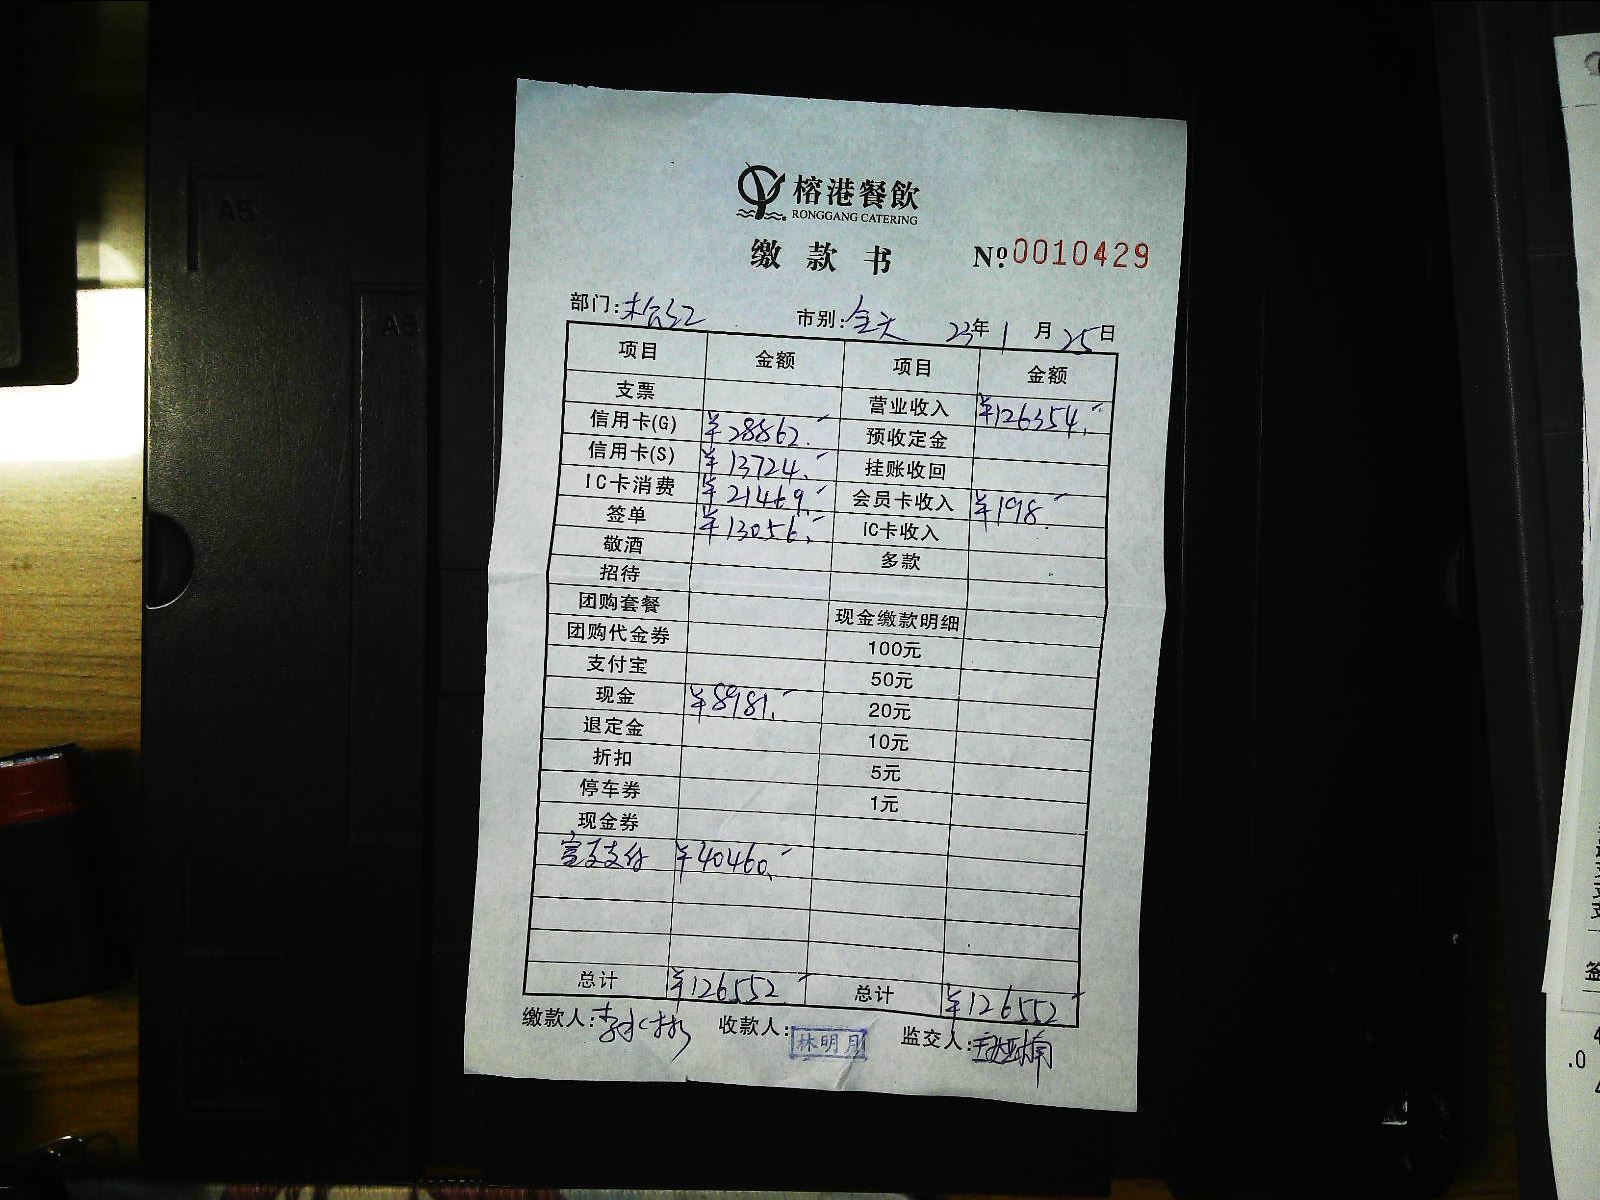 A5
A6
榕港餐飲
RONGGANG CATERING
缴款书 Nº.0010429
部门: 市别:全天 23年1月25日
项目 金额 项目 金额
支票 营业收入 ¥126354.-
信用卡(G) ¥28862.- 预收定金
信用卡(S) ¥13724.- 挂账收回
IC卡消费 ¥21469.- 会员卡收入 ¥198.-
签单 ¥13056.- IC卡收入
敬酒 多款
招待
团购套餐 现金缴款明细
团购代金券 100元
支付宝 50元
现金 ¥8981.- 20元
退定金 10元
折扣 5元
停车券 1元
现金券
支付 ¥40460.-
总计 ¥126552.- 总计 ¥126552.-
缴款人: 收款人:林明月 监交人: